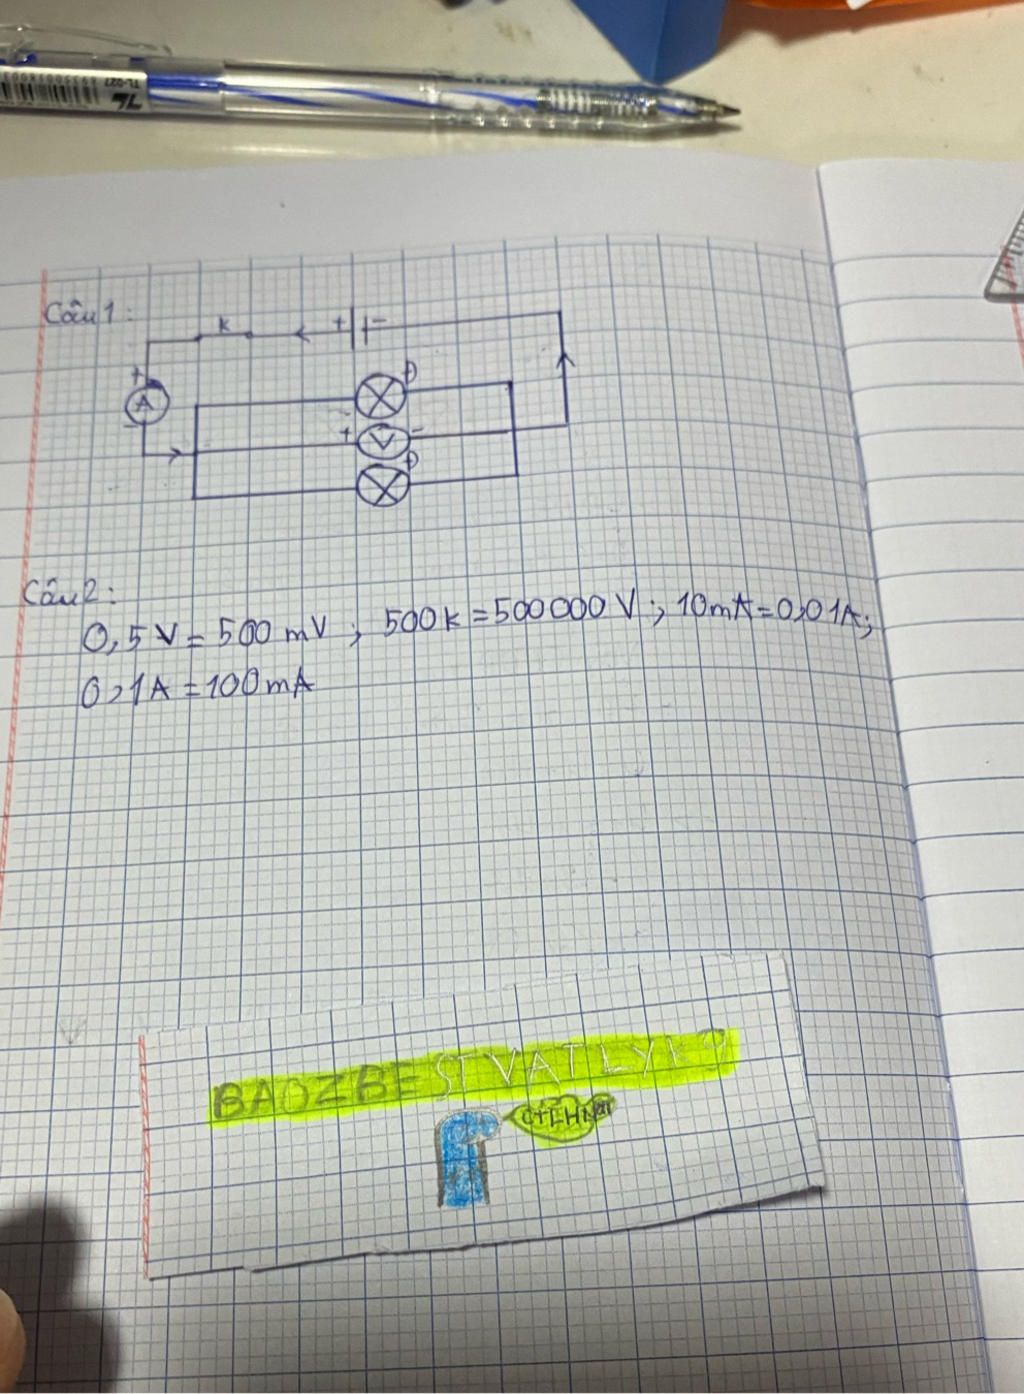 TL-027
TL
Câu 1:
K
+ -
+
A
Đ
+ V -
Đ
Câu 2:
0,5 V = 500 mV ; 500k = 500000 V ; 10mA = 0,01A ;
0,1A = 100mA
BAOZBESTVATLYK9